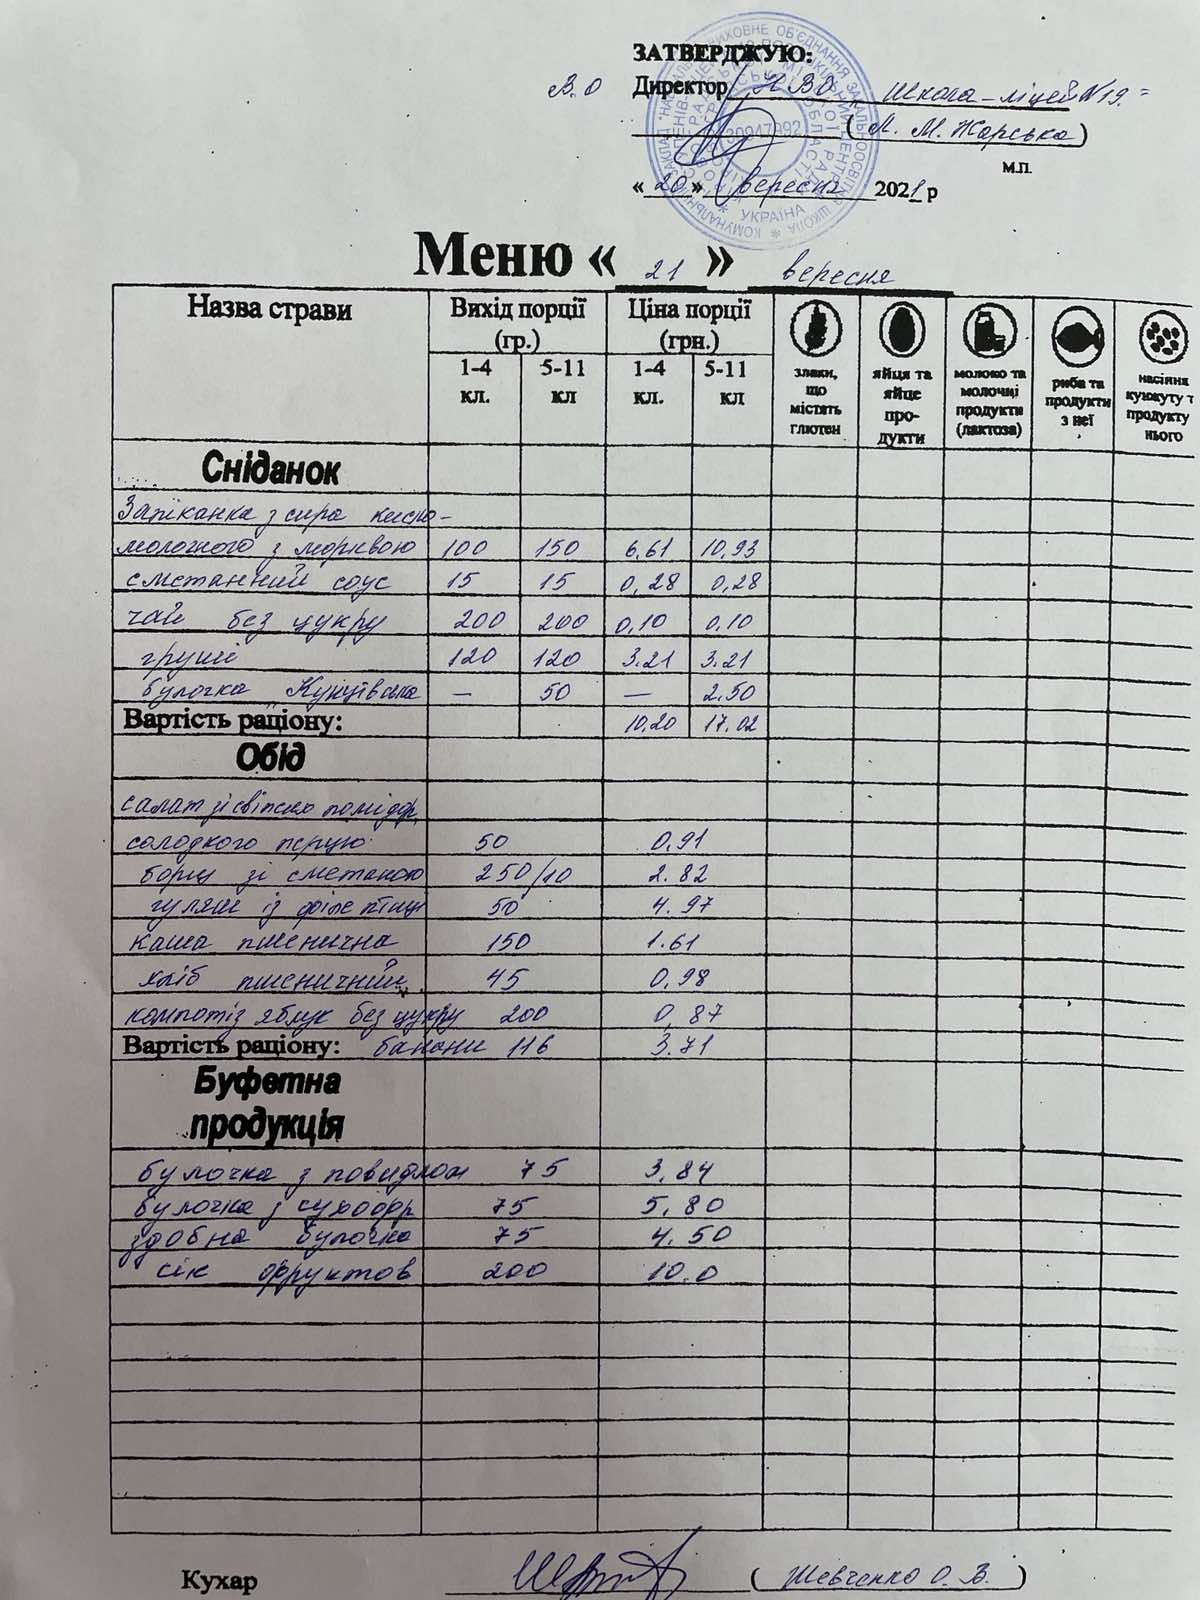 ЗАТВЕРДЖУЮ:
В.О Директор НВО Школа-ліцей №19
(Л. М. Жарська)
м.п.
« 20 » вересня 2021 р
УКРАЇНА
Меню « 21 » вересня
Назва страви Вихід порції (гр.) Ціна порції (грн.)
1-4 кл. 5-11 кл 1-4 кл. 5-11 кл
злаки, що містять глютен
яйця та яйце про- дукти
молоко та молочні продукти (лактоза)
риба та продукти з неї
насіння кунжуту т продукту нього
Сніданок
Запіканка з сира кисло-
молочного з морквою 100 150 6.61 10,93
сметанний соус 15 15 0,28 0,28
чай без цукру 200 200 0,10 0,10
груші 120 120 3.21 3.21
булочка Кунцівська — 50 — 2.50
Вартість раціону: 10.20 17.02
Обід
салат зі свіжих помідор,
солодкого перцю 50 0,91
борщ зі сметаною 250/10 2.82
гуляш із філе птиці 50 4.97
каша пшенична 150 1.61
хліб пшеничний 45 0,98
компот із яблук без цукру 200 0,87
Вартість раціону: банани 116 3.71
Буфетна
продукція
булочка з повидлом 75 3,84
булочка з сухофр 75 5,80
здобна булочка 75 4.50
сік фруктов 200 10.0
Кухар ( Шевченко О. В. )